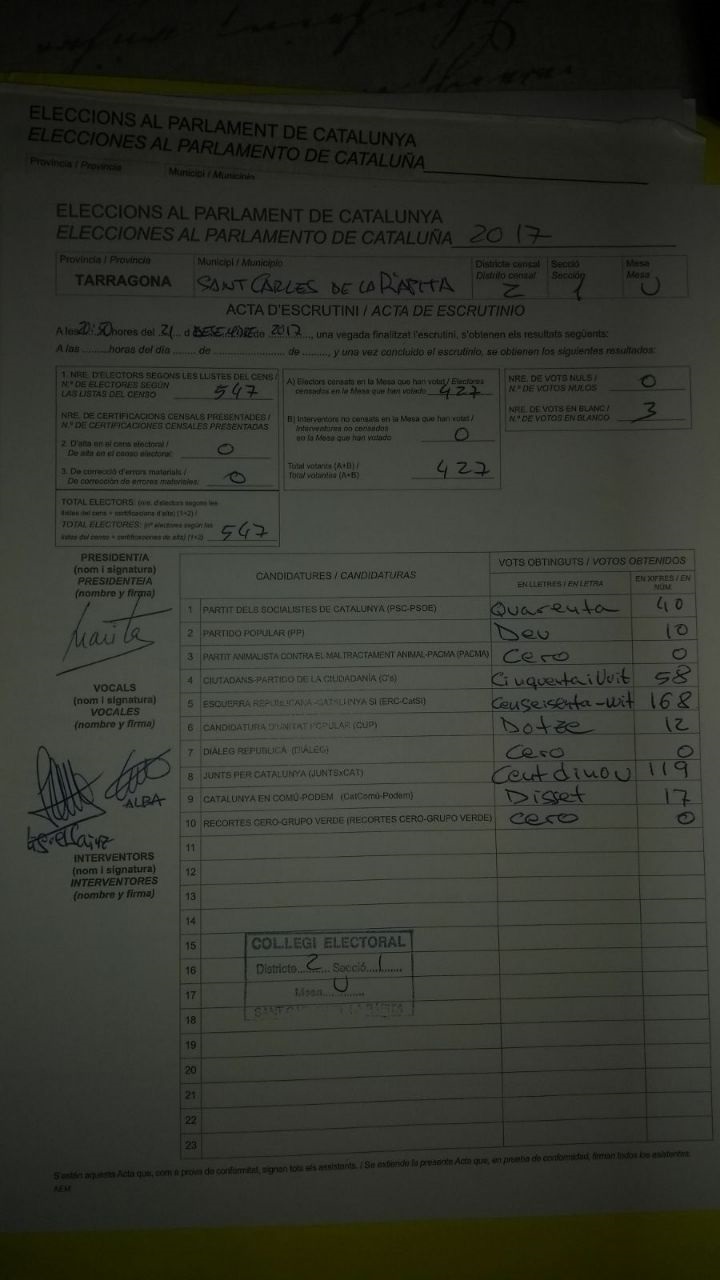 ELECCIONS AL PARLAMENT DE CATALUNYA
ELECCIONES AL PARLAMENTO DE CATALUÑA
Província / Provincia Municipi / Municipio
ELECCIONS AL PARLAMENT DE CATALUNYA
ELECCIONES AL PARLAMENTO DE CATALUÑA 2017
Província / Provincia Municipi / Municipio Districte censal Secció Mesa
Distrito censal Sección Mesa
TARRAGONA SANT CARLES DE LA RÀPITA 2 1 U
ACTA D'ESCRUTINI / ACTA DE ESCRUTINIO
A les 20:50 hores del 21 d DESEMBRE de 2017, una vegada finalitzat l'escrutini, s'obtenen els resultats següents:
A las ......... horas del día ....... de ...................... de ........, y una vez concluido el escrutinio, se obtienen los siguientes resultados:
1. NRE. D'ELECTORS SEGONS LES LLISTES DEL CENS /
N.º DE ELECTORES SEGÚN
LAS LISTAS DEL CENSO 547
NRE. DE CERTIFICACIONS CENSALS PRESENTADES /
N.º DE CERTIFICACIONES CENSALES PRESENTADAS
2. D'alta en el cens electoral /
De alta en el censo electoral: 0
3. De correcció d'errors materials /
De corrección de errores materiales: 0
TOTAL ELECTORS: (nre. d'electors segons les
llistes del cens + certificacions d'alta) (1+2) /
TOTAL ELECTORES: (nº electores según las
listas del censo + certificaciones de alta) (1+2) 547
A) Electors censats en la Mesa que han votat / Electores
censados en la Mesa que han votado 427
B) Interventors no censats en la Mesa que han votat /
Interventores no censados
en la Mesa que han votado 0
Total votants (A+B) /
Total votantes (A+B) 427
NRE. DE VOTS NULS /
N.º DE VOTOS NULOS 0
NRE. DE VOTS EN BLANC /
N.º DE VOTOS EN BLANCO 3
PRESIDENT/A
(nom i signatura)
PRESIDENTE/A
(nombre y firma)
VOCALS
(nom i signatura)
VOCALES
(nombre y firma)
ALBA
INTERVENTORS
(nom i signatura)
INTERVENTORES
(nombre y firma)
CANDIDATURES / CANDIDATURAS VOTS OBTINGUTS / VOTOS OBTENIDOS
EN LLETRES / EN LETRA EN XIFRES / EN NÚM.
1 PARTIT DELS SOCIALISTES DE CATALUNYA (PSC-PSOE) Quarenta 40
2 PARTIDO POPULAR (PP) Deu 10
3 PARTIT ANIMALISTA CONTRA EL MALTRACTAMENT ANIMAL-PACMA (PACMA) Cero 0
4 CIUTADANS-PARTIDO DE LA CIUDADANÍA (C's) Cinquentaivuit 58
5 ESQUERRA REPUBLICANA -CATALUNYA SÍ (ERC-CatSí) Censeisenta-uit 168
6 CANDIDATURA D'UNITAT POPULAR (CUP) Dotze 12
7 DIÀLEG REPUBLICÀ (DIÀLEG) Cero 0
8 JUNTS PER CATALUNYA (JUNTSxCAT) Cent dinou 119
9 CATALUNYA EN COMÚ-PODEM (CatComú-Podem) Disset 17
10 RECORTES CERO-GRUPO VERDE (RECORTES CERO-GRUPO VERDE) Cero 0
11
12
13
14
15
16
17
18
19
20
21
22
23
COL.LEGI ELECTORAL
Districte 2 Secció 1
Mesa U
S'estén aquesta Acta que, com a prova de conformitat, signen tots els assistents. / Se extiende la presente Acta que, en prueba de conformidad, firman todos los asistentes.